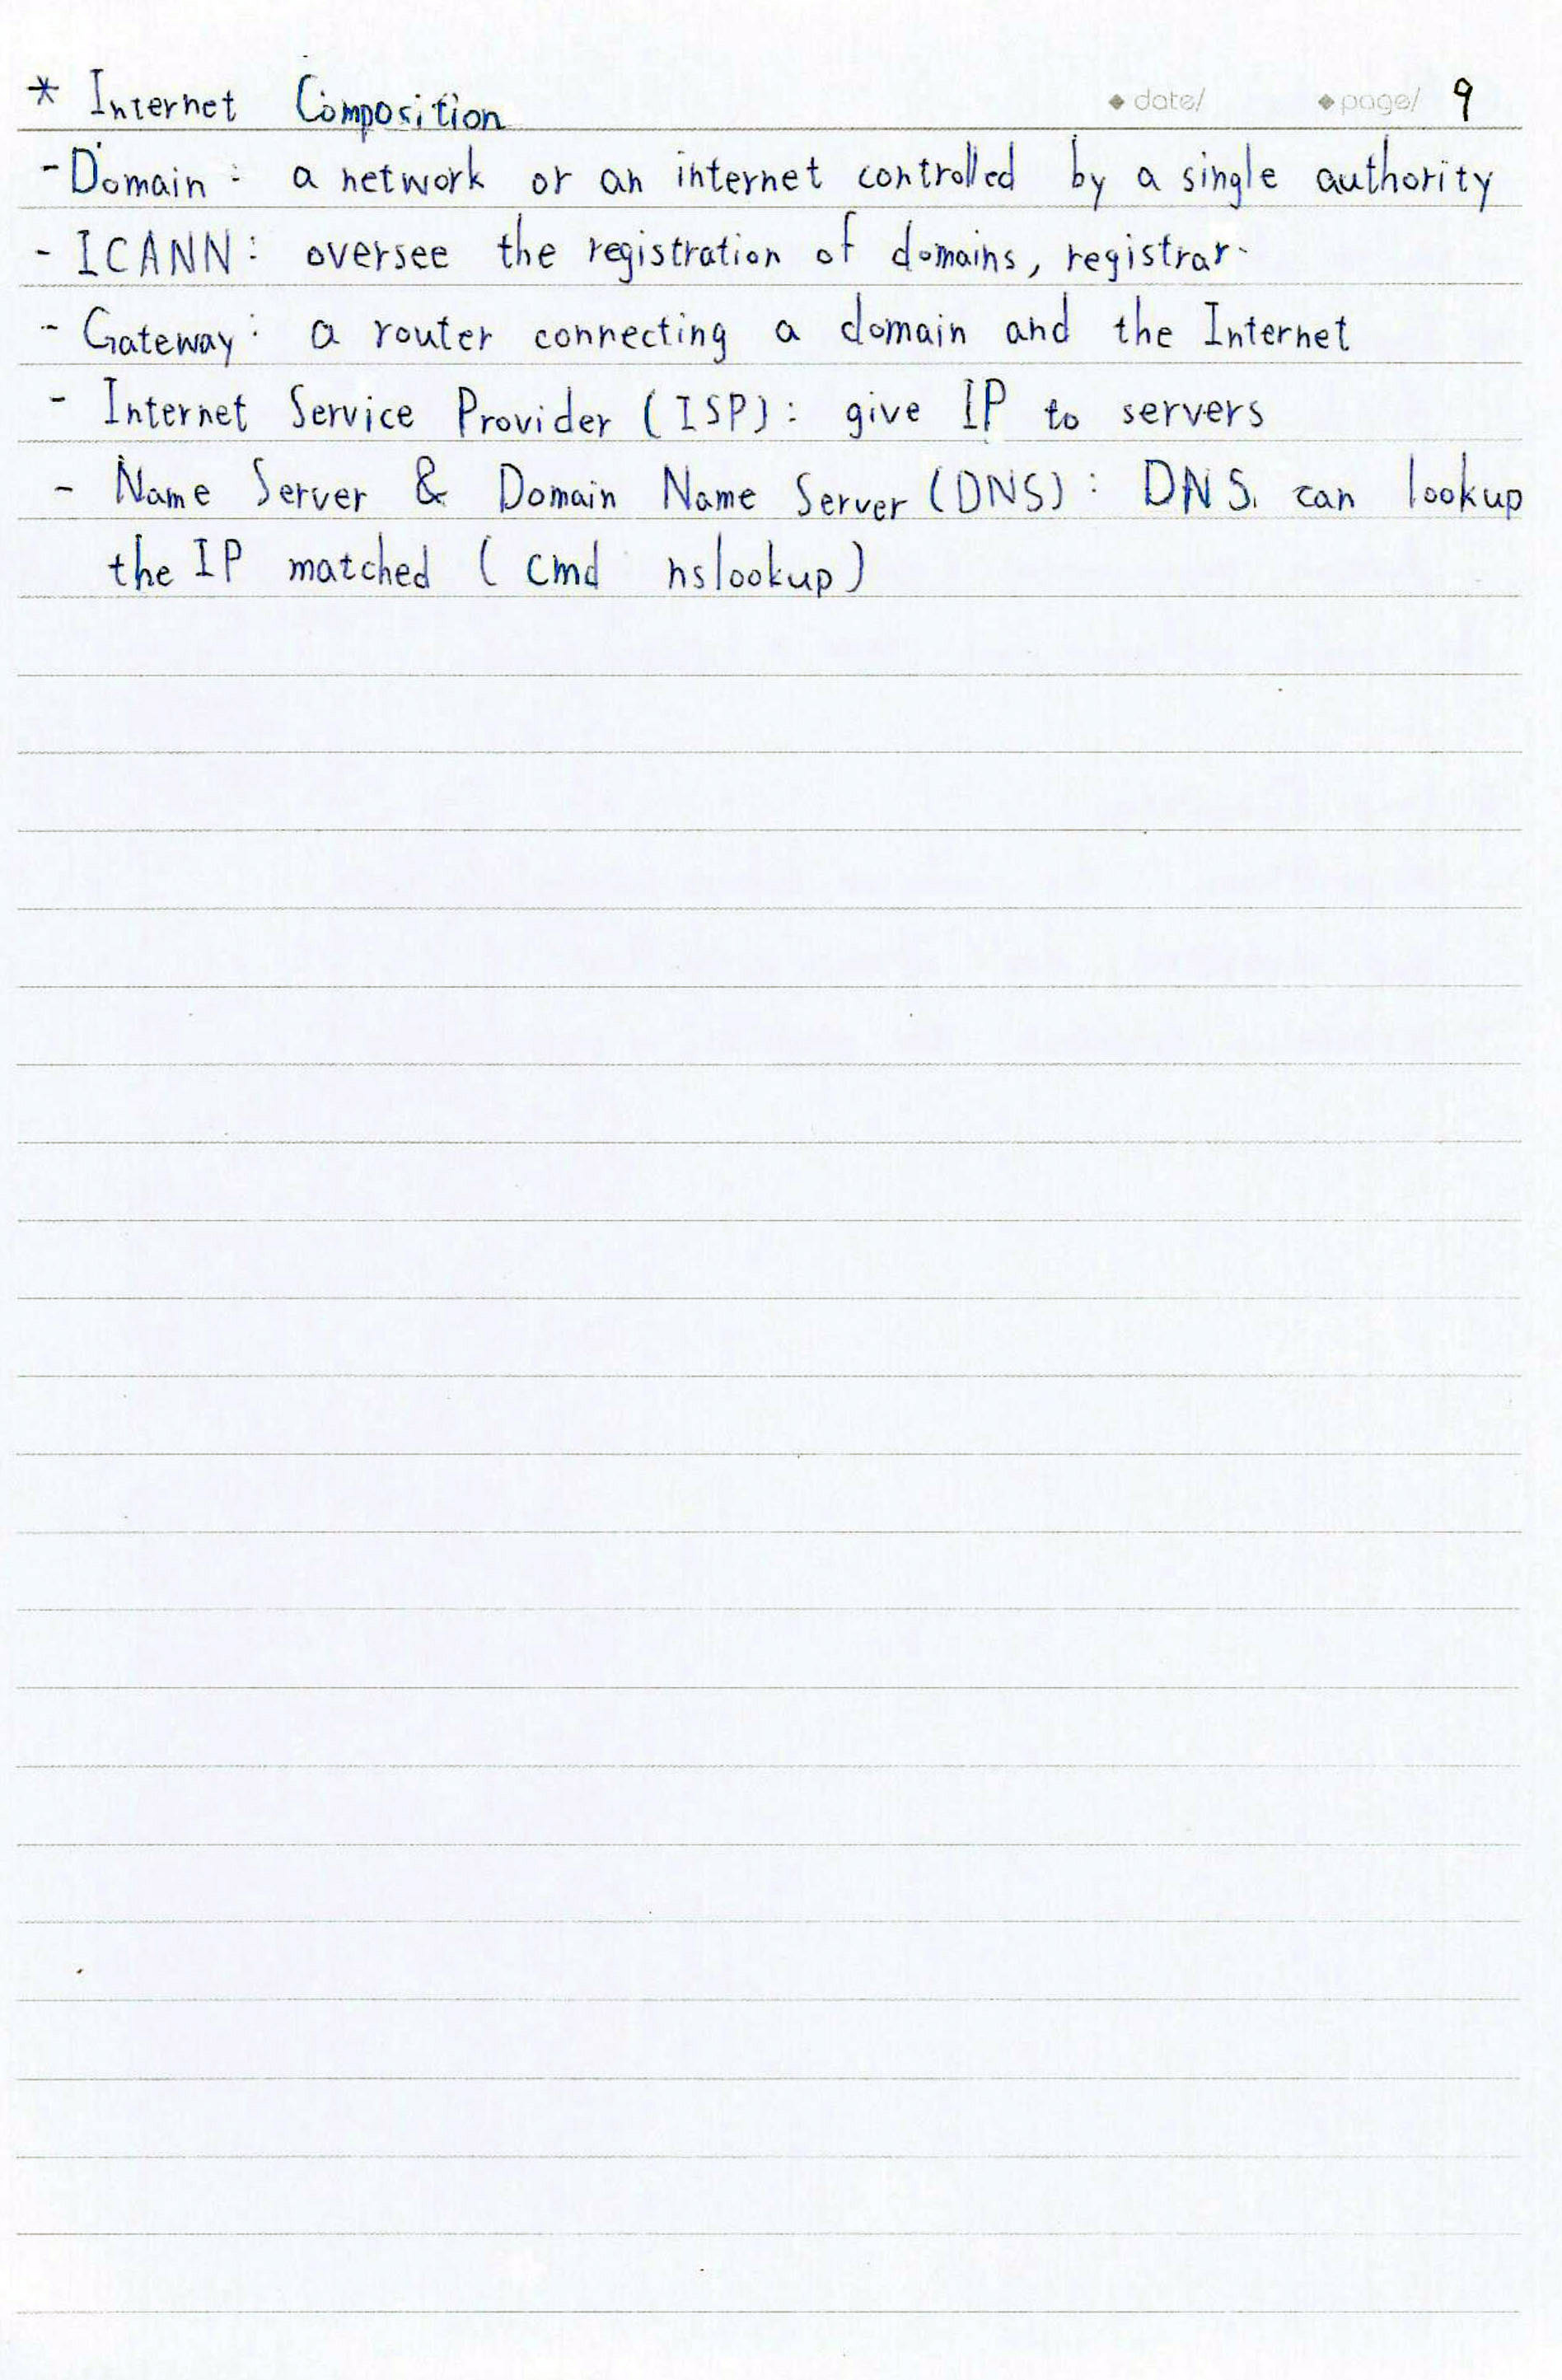 * Internet Composition ◆ date/ ◆ page/ 9
- Domain : a network or an internet controlled by a single authority
- ICANN : oversee the registration of domains, registrar.
- Gateway : a router connecting a domain and the Internet
- Internet Service Provider (ISP) : give IP to servers
- Name Server & Domain Name Server (DNS) : DNS. can lookup
the IP matched ( cmd nslookup )